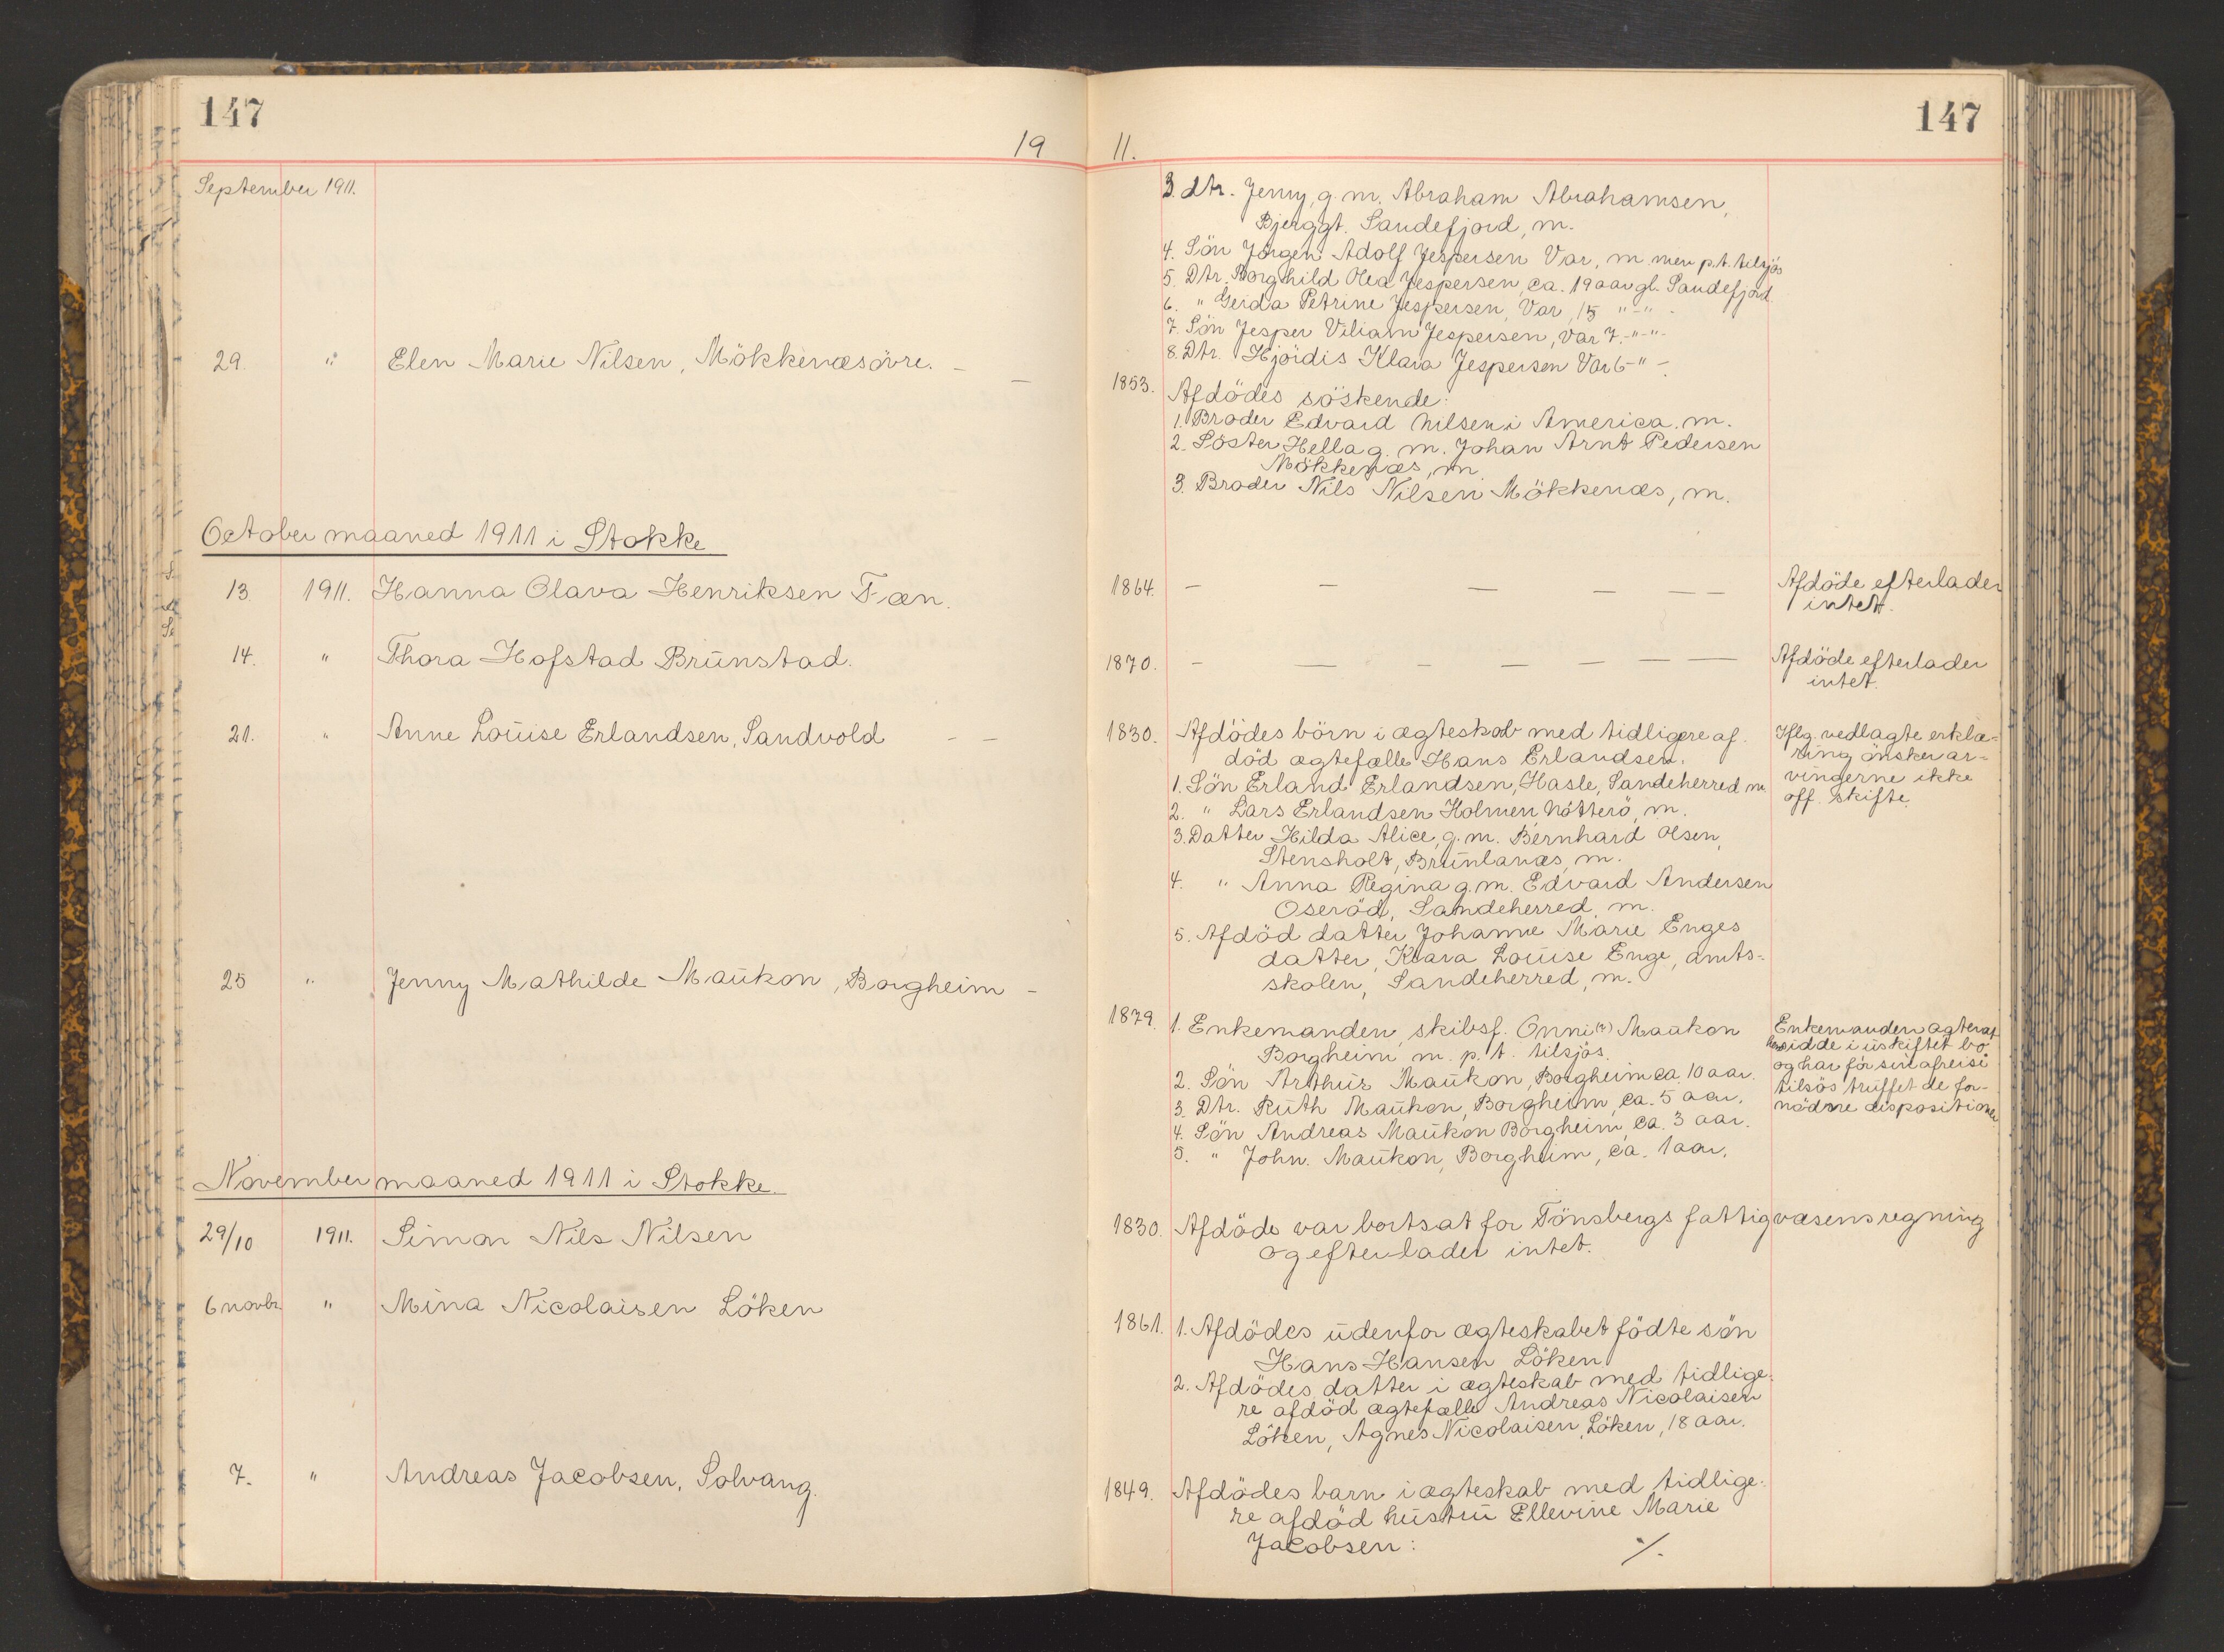 147
19
September 1911.
29. " Elen Marie Nilsen, Mökkenæs övre. — —
October maaned 1911 i Stokke
13. 1911. Hanna Olava Henriksen Fæn.
14. " Thora Hofstad Brunstad.
21. " Anne Louise Erlandsen, Sandvold — —
25 " Jenny Mathilde Maukon, Borgheim —
November maaned 1911 i Stokke.
29/10 1911. Simon Nils Nilsen
6 novbr. " Mina Nicolaisen Löken
7. " Andreas Jacobsen, Solvang.
147
11.
3. dtr. Jenny, g. m. Abraham Abrahamsen,
Bjerggt. Sandefjord, m.
4. Sön Jörgen Adolf Jespersen Var, m. men p.t. tilsjös
5. Dtr. Borghild Olea Jespersen, ca. 19 aar gl. Sandefjord
6. " Gerda Petrine Jespersen, Var, 15 "-"-
7. Sön Jesper Viliam Jespersen, Var 7.-"-"-
8. Dtr. Hjördis Klara Jespersen Var 6-"-
1853. Afdödes söskende:
1. Broder Edvard Nilsen i America. m.
2. Söster Hella g. m. Johan Arnt Pedersen
Mökkenæs, m
3. Broder Nils Nilsen Mökkenæs, m.
1864. — — — — — — Afdöde efterlader
intet.
1870. — — — — — — — Afdöde efterlader
intet.
1830. Afdödes börn i ægteskab med tidligere af-
död ægtefælle Hans Erlandsen.
1. Sön Erland Erlandsen, Hasle, Sandeherred m.
2. " Lars Erlandsen Holmen Nötterö, m.
3. Datter Hilda Alice, g. m. Bernhard Olsen,
Stensholt, Brunlanæs, m.
4. " Anna Regina g. m. Edvard Andersen
Oseröd, Sandeherred, m.
5. Afdöd datter Johanne Marie Enges
datter, Klara Louise Enge, amts-
skolen, Sandeherred, m.
Iflg. vedlagte erklæ-
ring önsker ar-
vingerne ikke
off. skifte.
1879. 1. Enkemanden, skibsf. Onni (?) Maukon
Borgheim m. p. t. tilsjös.
2. Sön Arthur Maukon, Borgheim ca. 10 aar.
3. Dtr. Ruth Maukon, Borgheim, ca. 5 aar.
4. Sön Andreas Maukon Borgheim, ca. 3 aar.
5. " John. Maukon, Borgheim, ca. 1 aar.
Enkemanden agter at
hensidde i uskiftet bo
og har för sin afreise
tilsös truffet de for-
nödne dispositioner
1830. Afdöde var bortsat for Tönsbergs fattigvæsens regning
og efterlader intet.
1861. 1. Afdödes udenfor ægteskabet födte sön
Hans Hansen Löken
2. Afdödes datter i ægteskab med tidlige-
re afdöd ægtefælle Andreas Nicolaisen
Löken, Agnes Nicolaisen, Löken, 18 aar.
1849. Afdödes barn i ægteskab med tidlige-
re afdöd hustru Ellevine Marie
Jacobsen: ./.